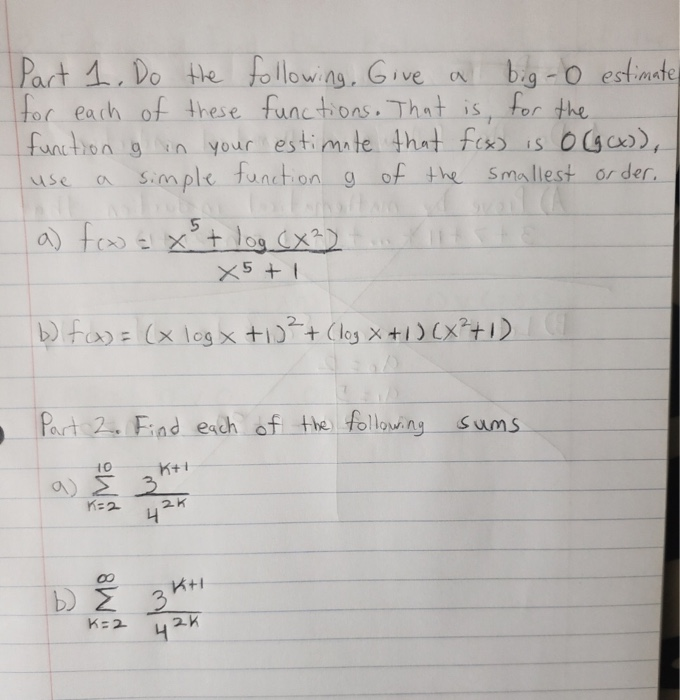 Part 1. Do the following. Give a big-O estimate
for each of these functions. That is, for the
function g in your estimate that f(x) is O(g(x)),
use a simple function g of the smallest order.
a) f(x) = x⁵ + log(x²)
x⁵ + 1
b) f(x) = (x log x + 1)² + (log x + 1)(x² + 1)
Part 2. Find each of the following sums
a) 10 Σ K=2 3^(K+1)
4^(2K)
b) ∞ Σ K=2 3^(K+1)
4^(2K)